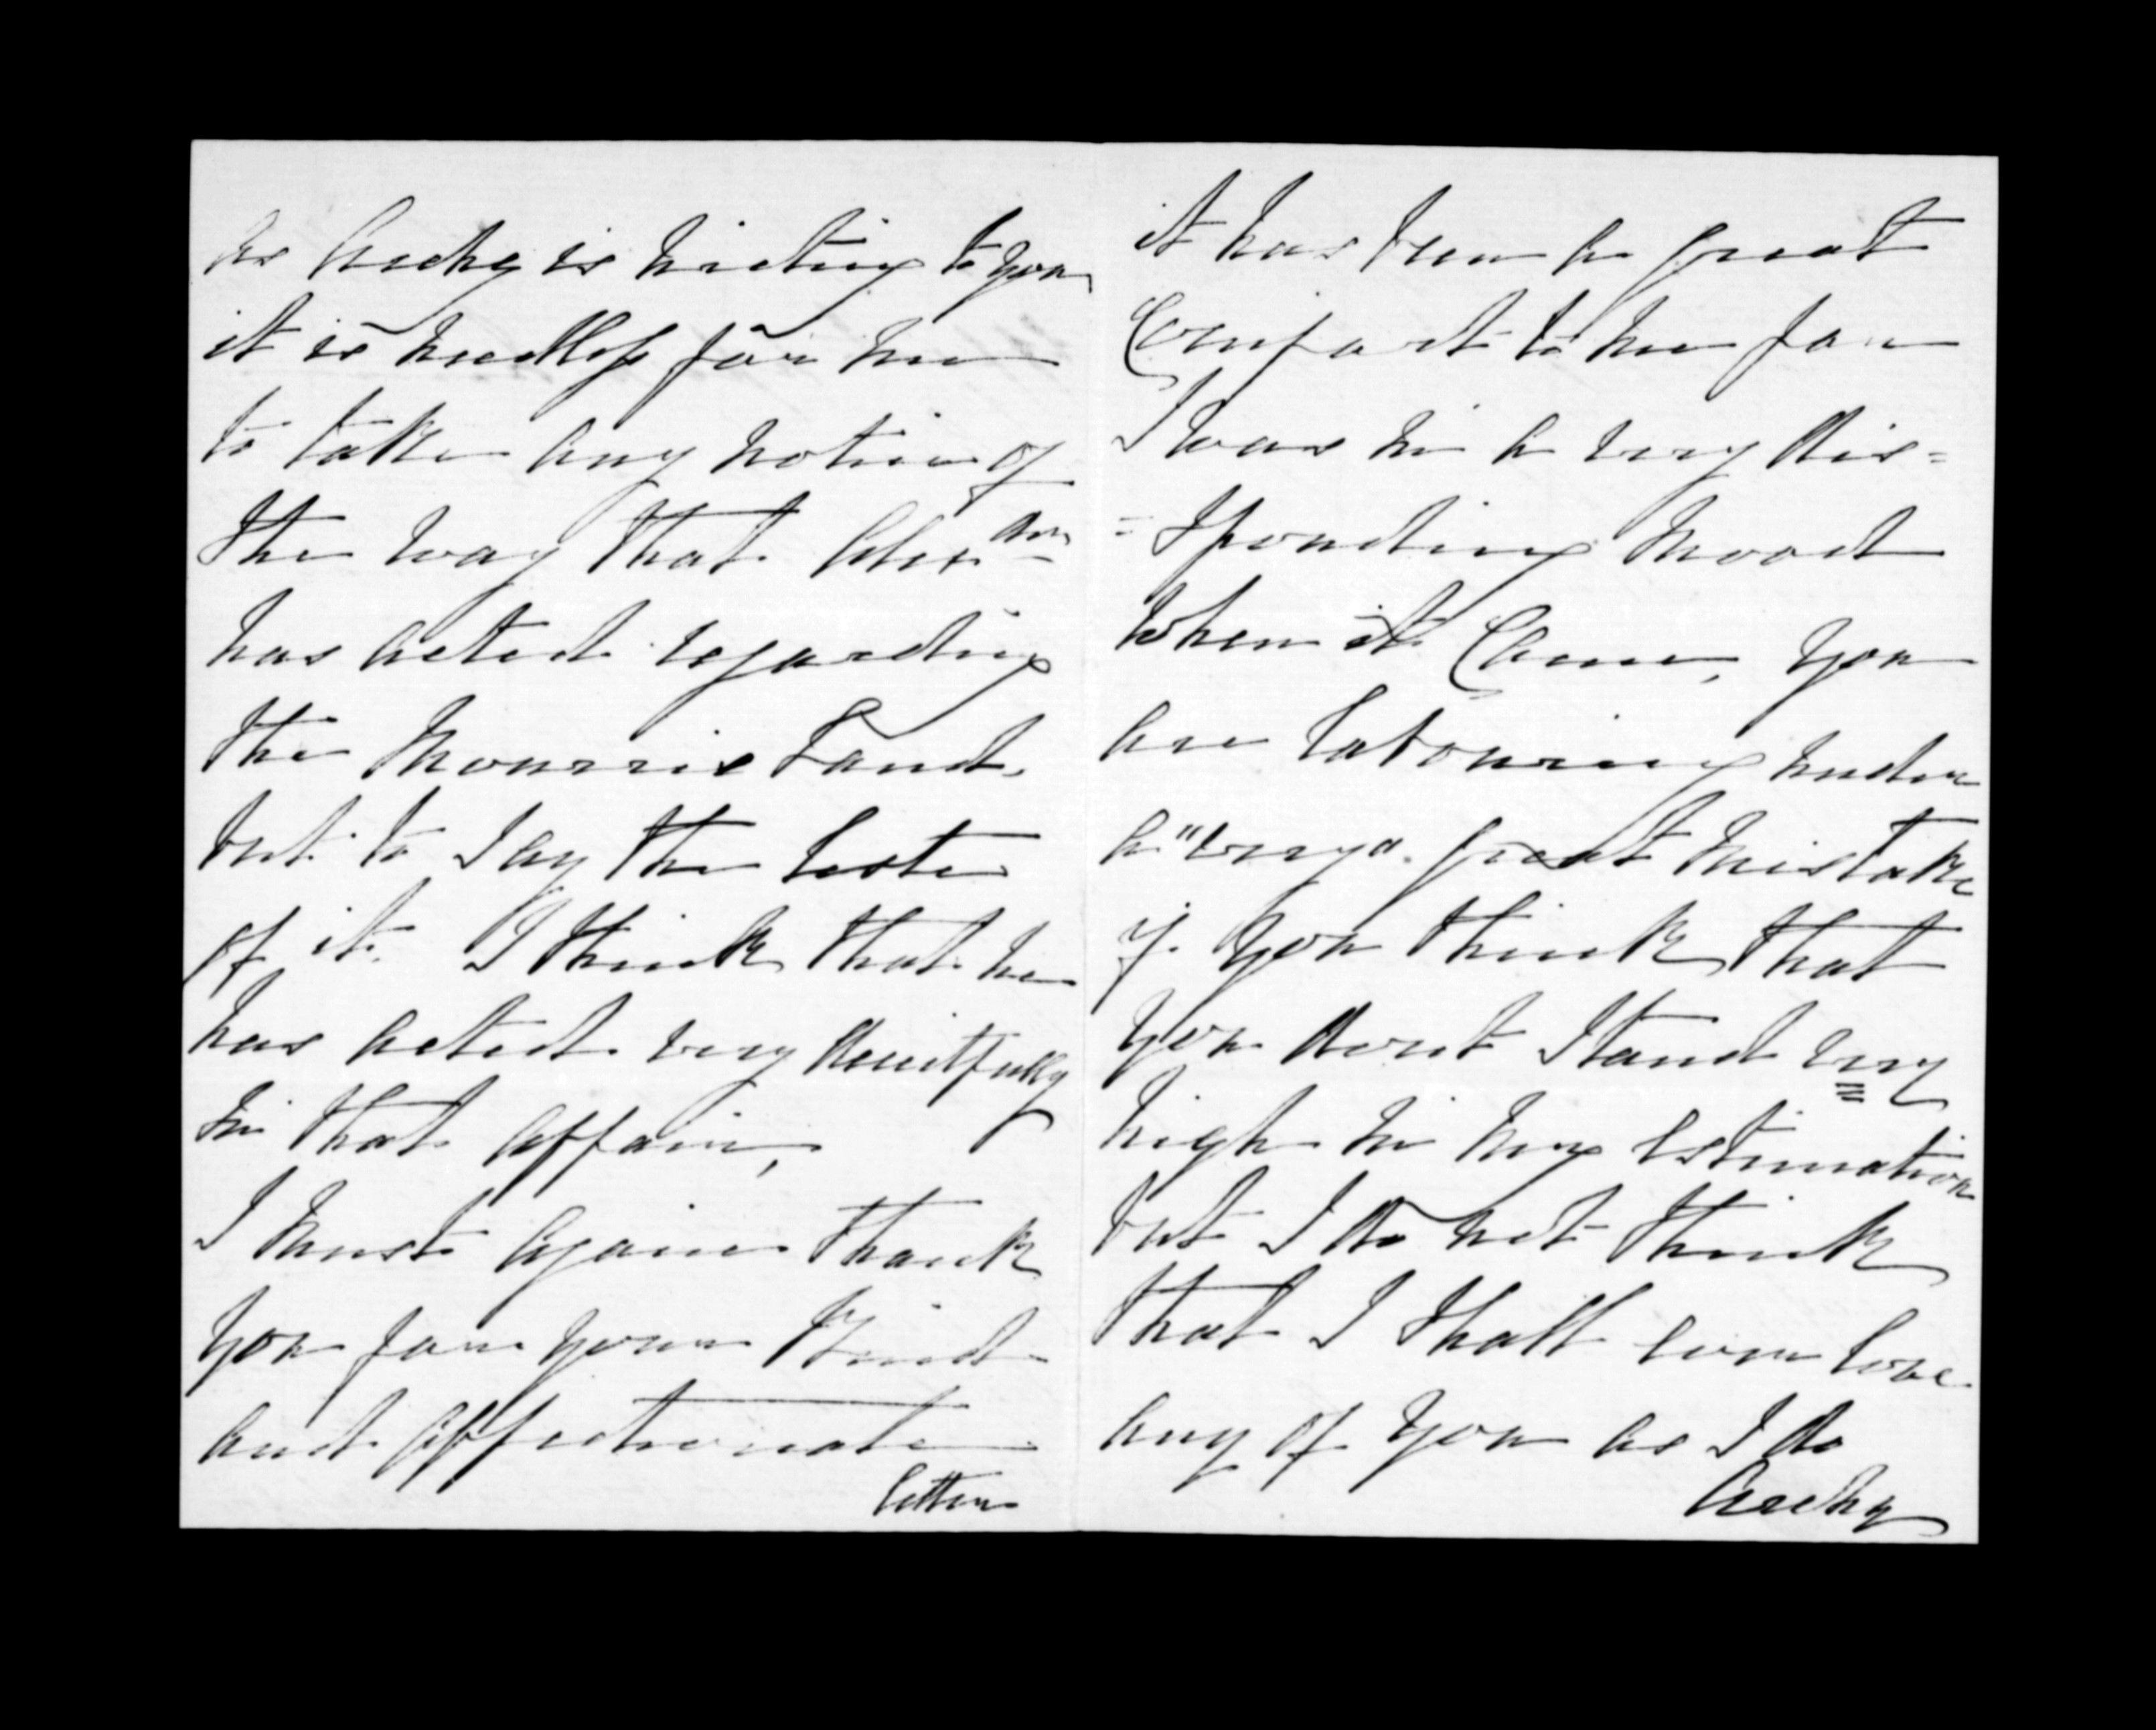 As Archy is writing to you
it is needless for me
to take any notice of
the way that Alexdr
has acted regarding
the Mourris Land.
but to say the leste
of it. I think that he
has acted very deceitfully
in that affair,
I must again thank
you for your kind
and affectionate
letter
it has been a great
Comfort to me for
I was in a very dis=
=sponding mood
when it Came, you
are labouring under
a "very". great mistake
if you think that
you dont stand very
high in my estimation
but I do not think
that I shall ever love
any of you as I do
Archy